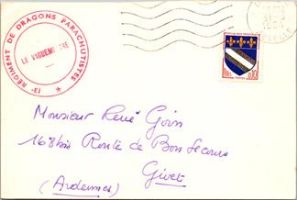 13e RÉGIMENT DE DRAGONS PARACHUTISTES
LE VAGUEMESTRE
Monsieur René Goin
168 bis Route de Bon Secours
Givet
(Ardennes)